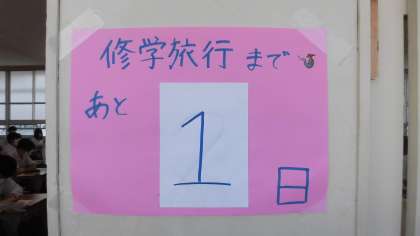 修学旅行まで
あと
1
日